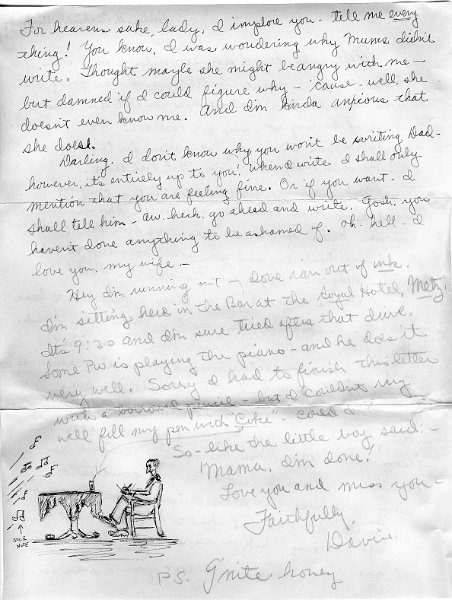 For heavens sake, lady, I implore you - tell me every
thing! You know, I was wondering why Mums didn't
write. Thought maybe she might be angry with me -
but damned if I could figure why - 'cause - well, she
doesn't even know me. And I'm kinda anxious that
she does.
Darling, I don't know why you won't be writing Dad -
however, its entirely up to you! When I write I shall only
mention that you are feeling fine. Or if you want - I
shall tell him - aw - heck, go ahead and write. Gosh, you
haven't done anything to be ashamed of. Oh - hell - I
love you, my wife -
Hey I'm running out - have ran out of ink.
I'm sitting here in the Bar at the Royal Hotel, Metz.
It's 9:30 and I'm sure tired after that drive.
Some Pvt is playing the piano - and he does it
very well. Sorry I had to finish this letter
with a borrowed pencil - but I couldn't very
well fill my pen with "Coke" - could I
So - like the little boy said -
Mama, I'm done!
Love you and miss you
Faithfully,
Davie.
NOTE
P.S. G'nite honey